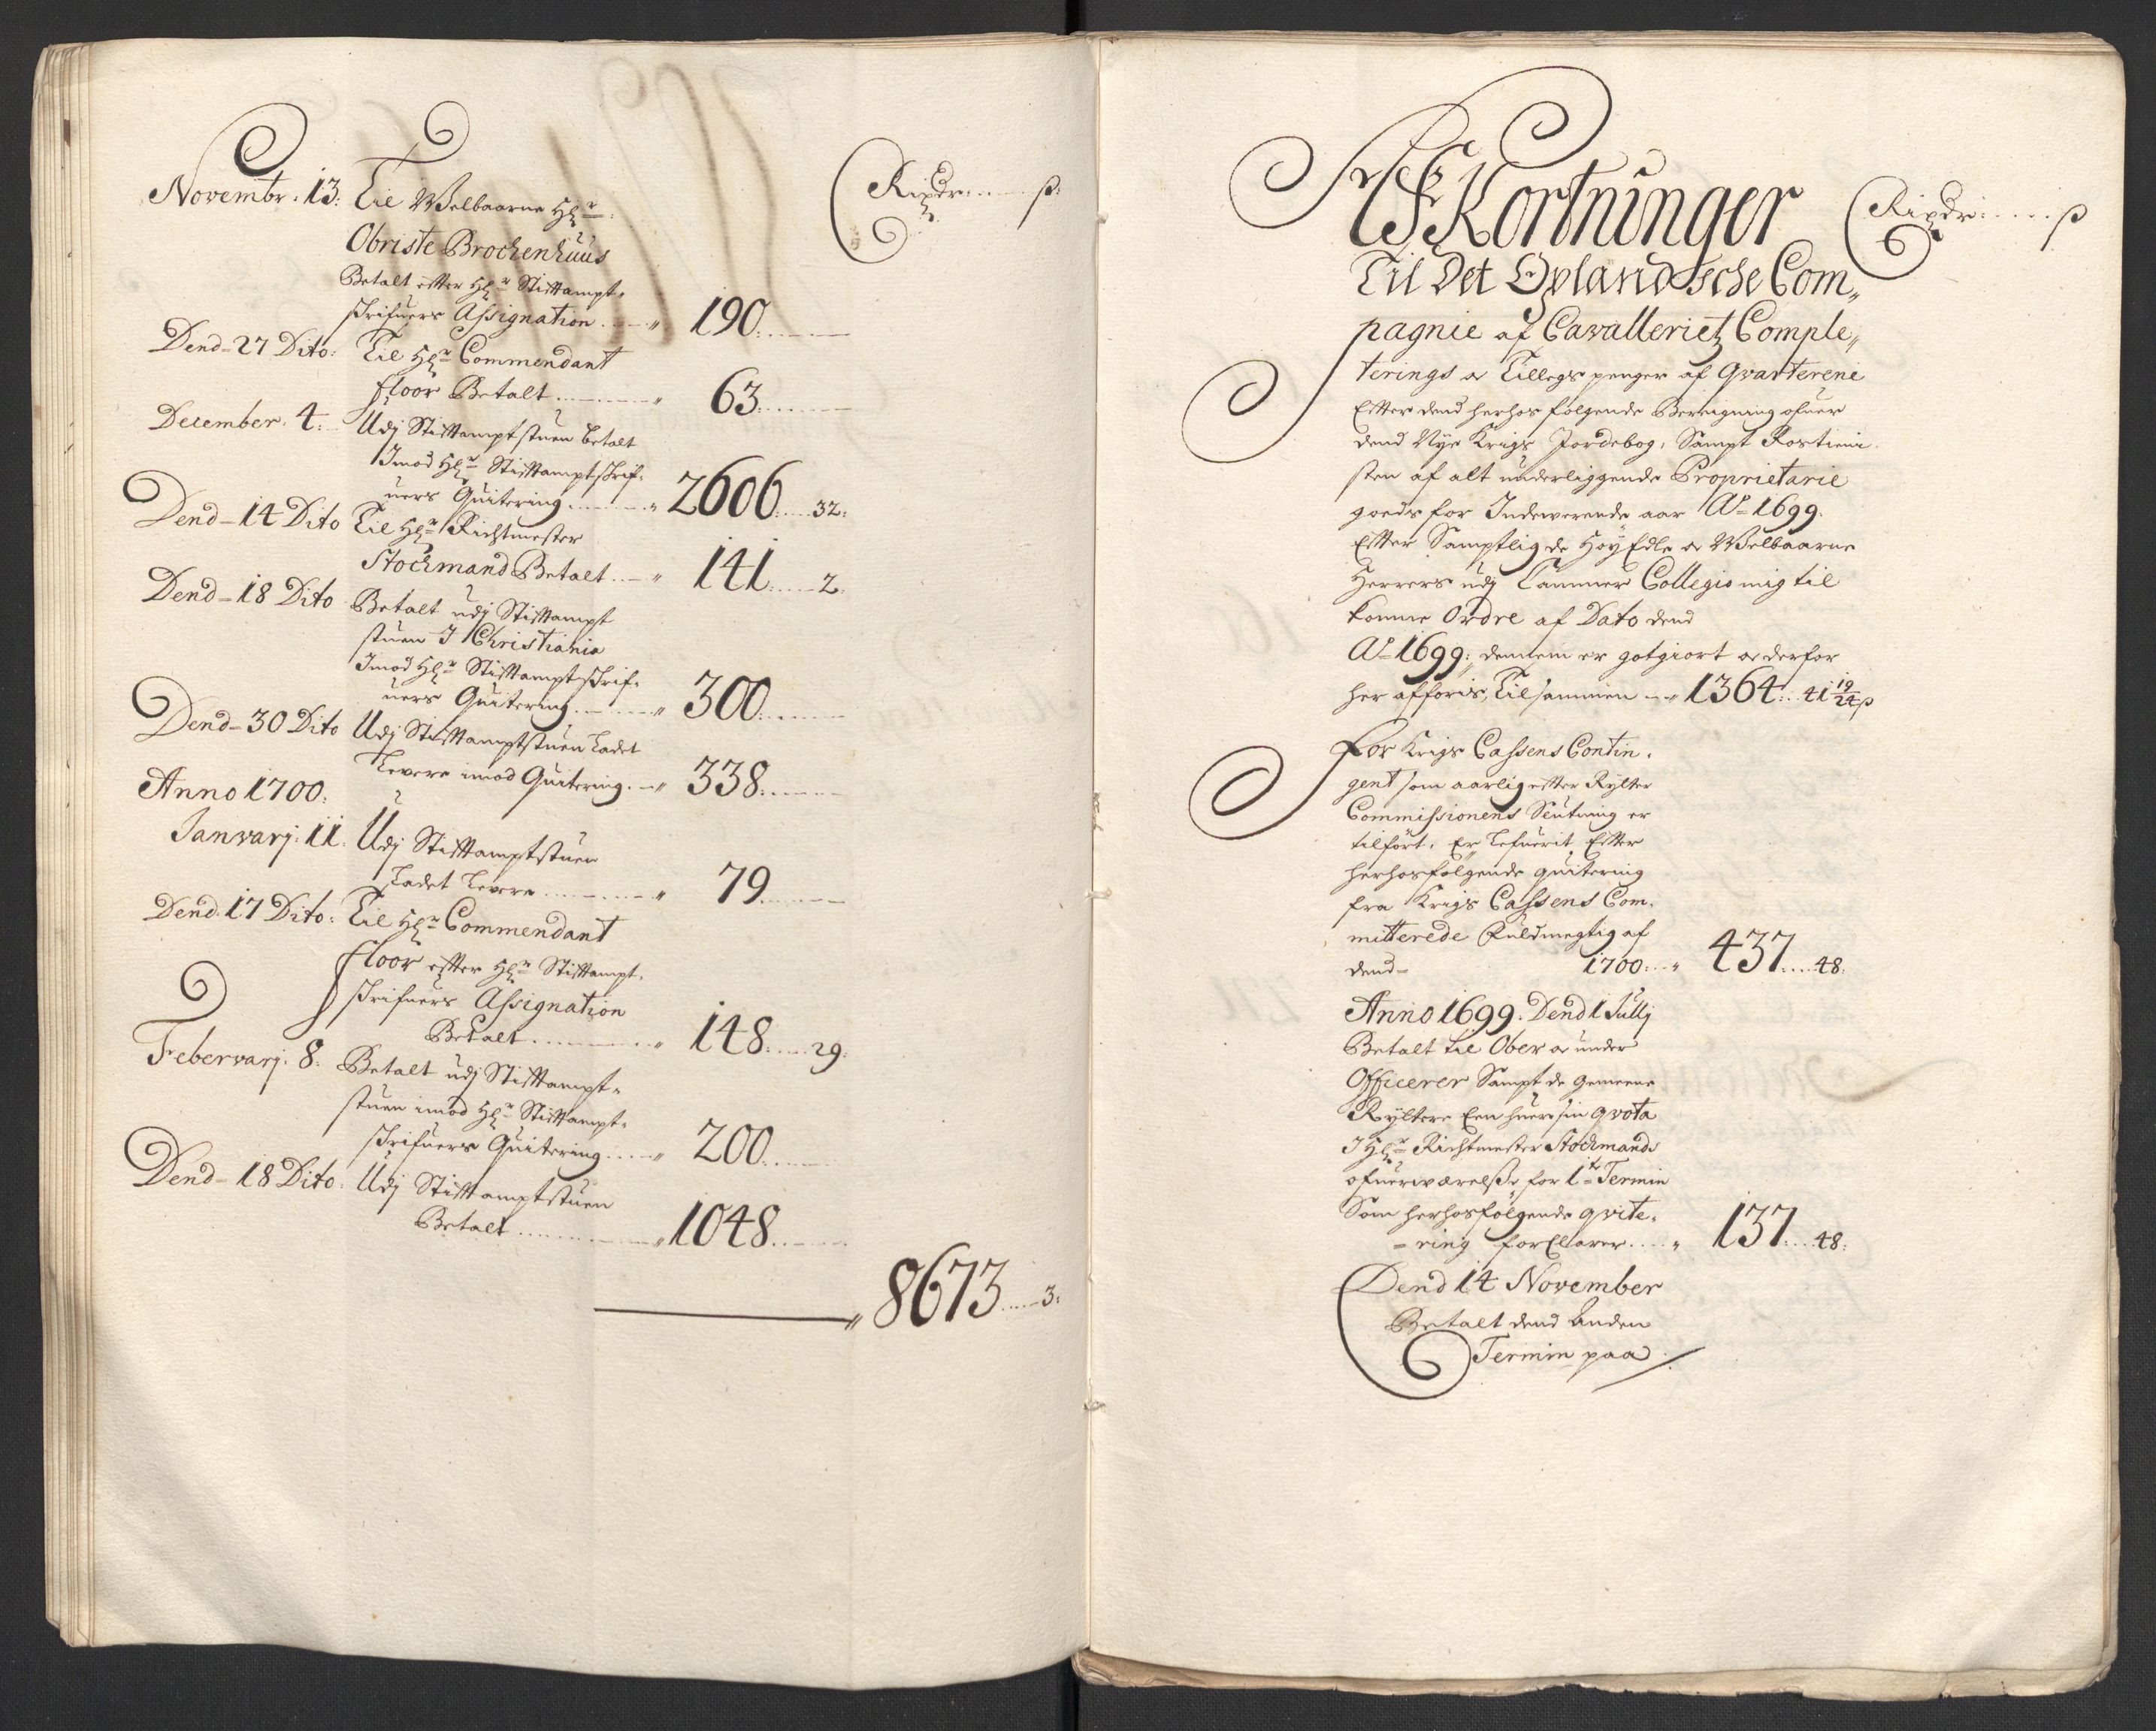 Rixdr ..... ß:
Novembr. 13: Til Welbaarne Hr:
Obriste Brochenhuus
Betalt efter Hr Stiftampt-
skrifuers Assignation ..... 190:
Dend - 27 Dito: Til Hr Commendant
floor Betalt ..... 63:
December. 4: Udj Stiftamptstuen betalt
Imod Hr Stiftamptskrif-
uers Quitering ..... 2606 .... 32:
Dend - 14 Dito Til Hr Richtmester
Stochmand Betalt .... 141: .... 2:
Dend - 18 Dito Betalt udj Stiftampt
stuen I Christiania
Imod Hr Stiftamptskrif-
uers Quitering ..... 300:
Dend - 30 Dito Udj Stiftamptstuen Ladet
Levere imod Quitering. 338:
Anno 1700:
Janvarj: 11. Udj Stiftamptstuen
Ladet Levere ..... 79:
Dend. 17 Dito: Til Hr Commendant
floor efter Hr Stiftampt-
skrifuers Assignation
Betalt ..... 148: .... 29:
Febervarj. 8: Betalt udj Stiftampt-
stuen imod Hr Stiftampt-
skrifuers Quitering ..... 200:
Dend - 18 Dito: Udj Stiftamptstuen
Betalt ..... 1048:
8673 .... 3:
Rixdr: ..... ß
AfKortninger
Til Det Oplandsche Com„
pagnie af Cavalleriet Comple„
terings oc Tillegs penger af Qvarterene
Efter dend herhos følgende Beregning ofuer
dend Nye Krigs Jordebog, Sampt Rostieni-
sten af alt underliggende Proprietarie
goeds for Indewerende aar Ao 1699.
Efter Samptlig de Høy Edle oc Welbaarne
Herrers udj Cammer Collegio mig til
komne Ordre af Dato dend
Ao 1699: dennem er gotgiort oc derfor
her afføris, Tilsammen 1364: .. 41 19/24 ß
For Krigs Cassens Contin-
gent som aarlig efter Rytter
Commissionens Slutning er
tilført, Er Lefuerit Efter
herhosfølgende quitering
fra Krigs Cassens Com-
mitterede Fuldmegtig af
dend - 1700: .. 437 .... 48:
Anno 1699. Dend 1 Jullj
Betalt til Ober oc under
Officerer Sampt de Gemeene
Ryttere Een huer sin qvota
I Hr Richtmester Stochmands
ofuerwærelse for 1te Termin
Som herhosfølgende qvite-
- ring forklarer .... 137 .... 48:
Dend 14 November
Betalt dend Anden
Termin paa